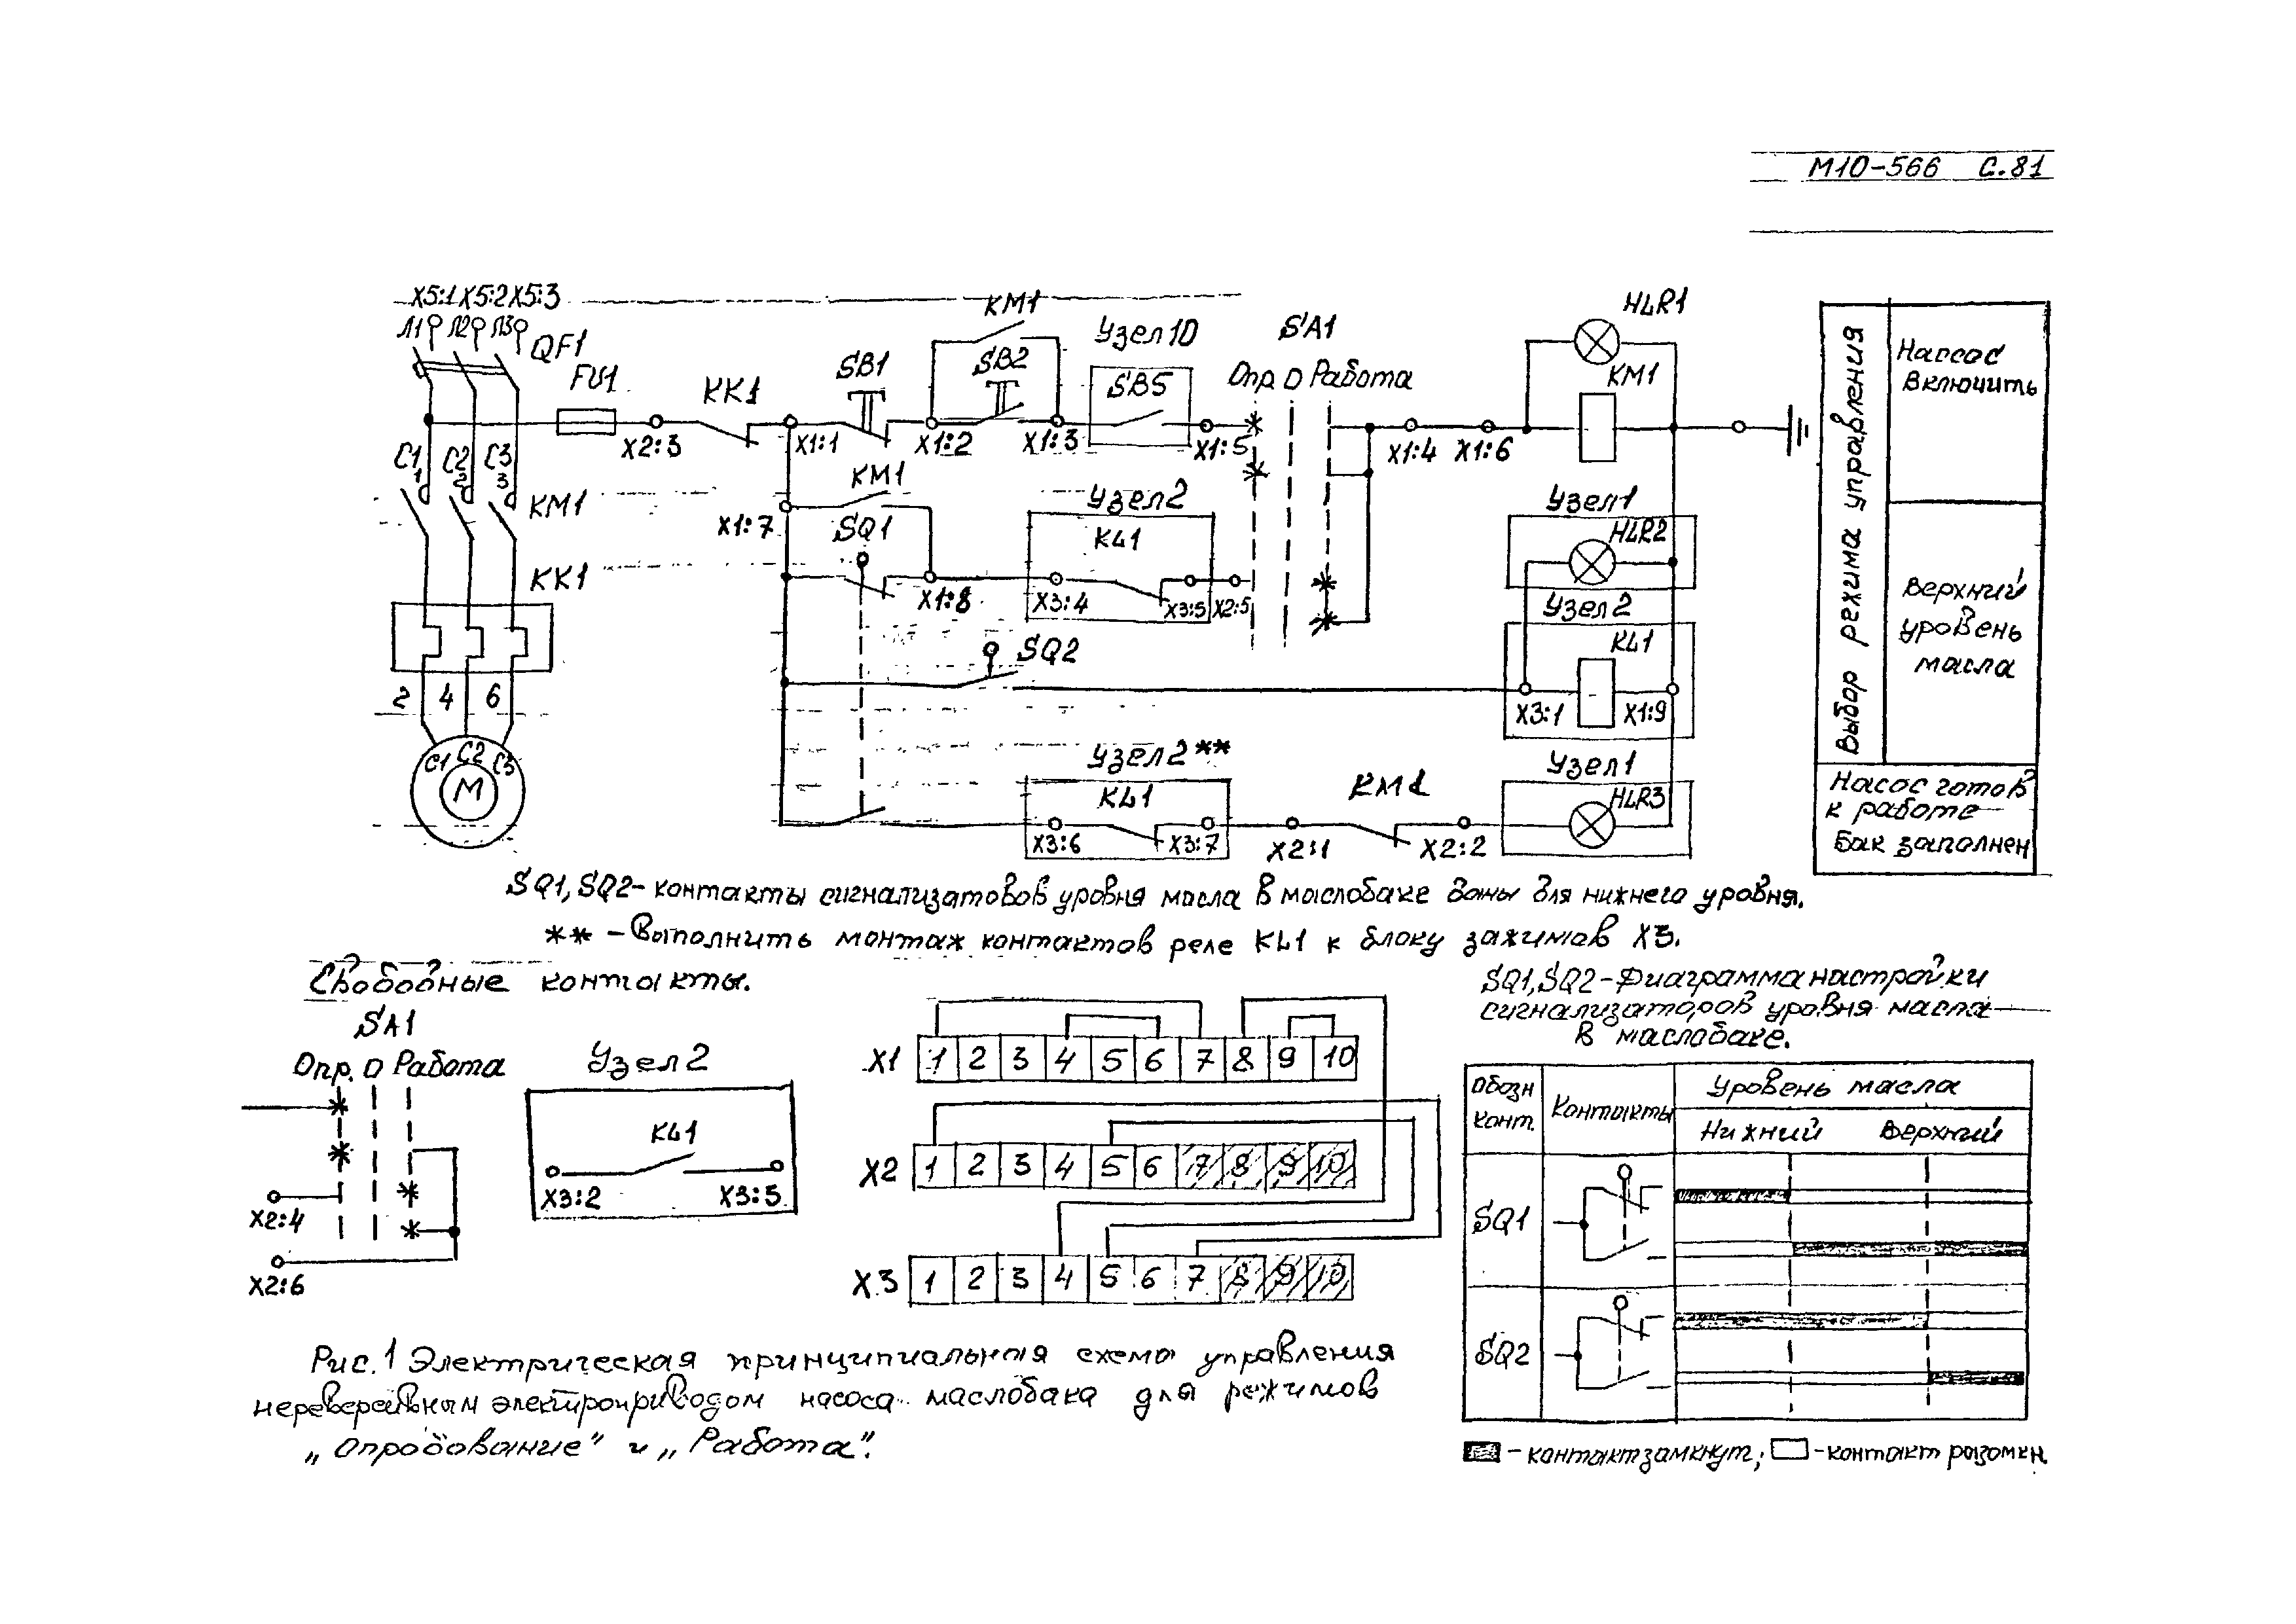 М10-566 С.81
X5:1 X5:2 X5:3
Л1 Л2 Л3
QF1
FU1
KK1
SB1
KM1
SB2
Узел 10
SB5
SA1
Опр. 0 Работа
HLR1
KM1
X2:3
X1:1
X1:2
X1:3
X1:5
X1:4
X1:6
C1 C2 C3
1 2 3
KM1
KK1
2 4 6
C1 C2 C3
M
X1:7
KM1
SQ1
X1:8
Узел 2
KL1
X3:4
X3:5
X2:5
SQ2
Узел 1
HLR2
Узел 2
KL1
X3:1
X1:9
Узел 2**
KL1
X3:6
X3:7
X2:1
KM1
X2:2
Узел 1
HLR3
Выбор режима управления
Нассос
Включить
Верхний
уровень
масла
Насос готов
к работе
Бак заполнен
SQ1, SQ2- контакты сигнализатовов уровня масла в маслобаке даны для нижнего уровня.
** - Выполнить монтаж контактов реле KL1 к блоку зажимов X3.
Свободные контакты.
SA1
Опр. 0 Работа
X2:4
X2:6
Узел 2
KL1
X3:2
X3:5
X1 1 2 3 4 5 6 7 8 9 10
X2 1 2 3 4 5 6 7 8 9 10
X3 1 2 3 4 5 6 7 8 9 10
SQ1, SQ2 - Диаграмма настройки
сигнализаторов уровня масла
в маслобаке.
Обозн
конт.
Контакты
Уровень масла
Нижний
Верхний
SQ1
SQ2
- контакт замкнут; - контакт разомкн.
Рис. 1 Электрическая принципиальная схема управления
нереверсивным электроприводом насоса маслобака для режимов
„Опробование" и „Работа".